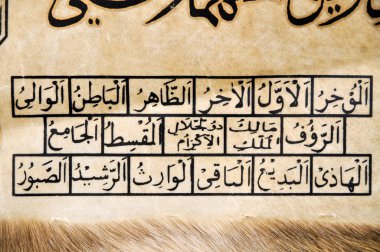 المؤخر الأول الآخر الظاهر الباطن الوالي
الرؤوف مالك الملك ذو الجلال والإكرام المقسط الجامع
الهادي البديع الباقي الوارث الرشيد الصبور